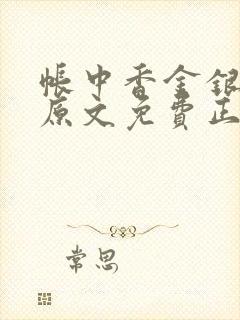 帳中香金銀
原文免費正
常思